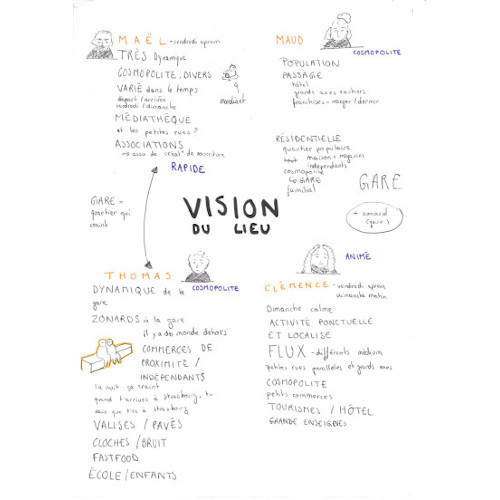 MAËL - vendredi aprem
TRÈS Dynamique
COSMOPOLITE, DIVERS
VARIÉ dans le temps
départ/arrivée
vendredi/dimanche
mendiant
MÉDIATHÈQUE
et les petites rues?
ASSOCIATIONS
RAPIDE
MAUD
COSMOPOLITE
POPULATION
PASSAGE
hôtel
grands axes routiers
franchises = manger/dormir
RÉSIDENTIELLE
quartier populaire
tout maison + magasins
indépendants
cosmopolite
LA GARE
familial
GARE
+ canard
(gare)
GARE =
quartier qui
craint
VISION
DU LIEU
THOMAS
COSMOPOLITE
DYNAMIQUE de la
gare
ZONARDS à la gare
il y a du monde dehors
COMMERCES DE
PROXIMITÉ /
INDÉPENDANTS
la nuit ça craint
quand t'arrives à Strasbourg, tu
sais que t'es à Strasbourg
VALISES / PAVÉS
CLOCHES / BRUIT
FASTFOOD
ÉCOLE / ENFANTS
ANIMÉ
CLÉMENCE - vendredi aprem
dimanche matin
Dimanche calme
ACTIVITÉ PONCTUELLE
ET LOCALISÉ
FLUX - différents médium
petites rues parallèles et grands axes
COSMOPOLITE
petits commerces
TOURISMES / HÔTEL
GRANDE ENSEIGNES